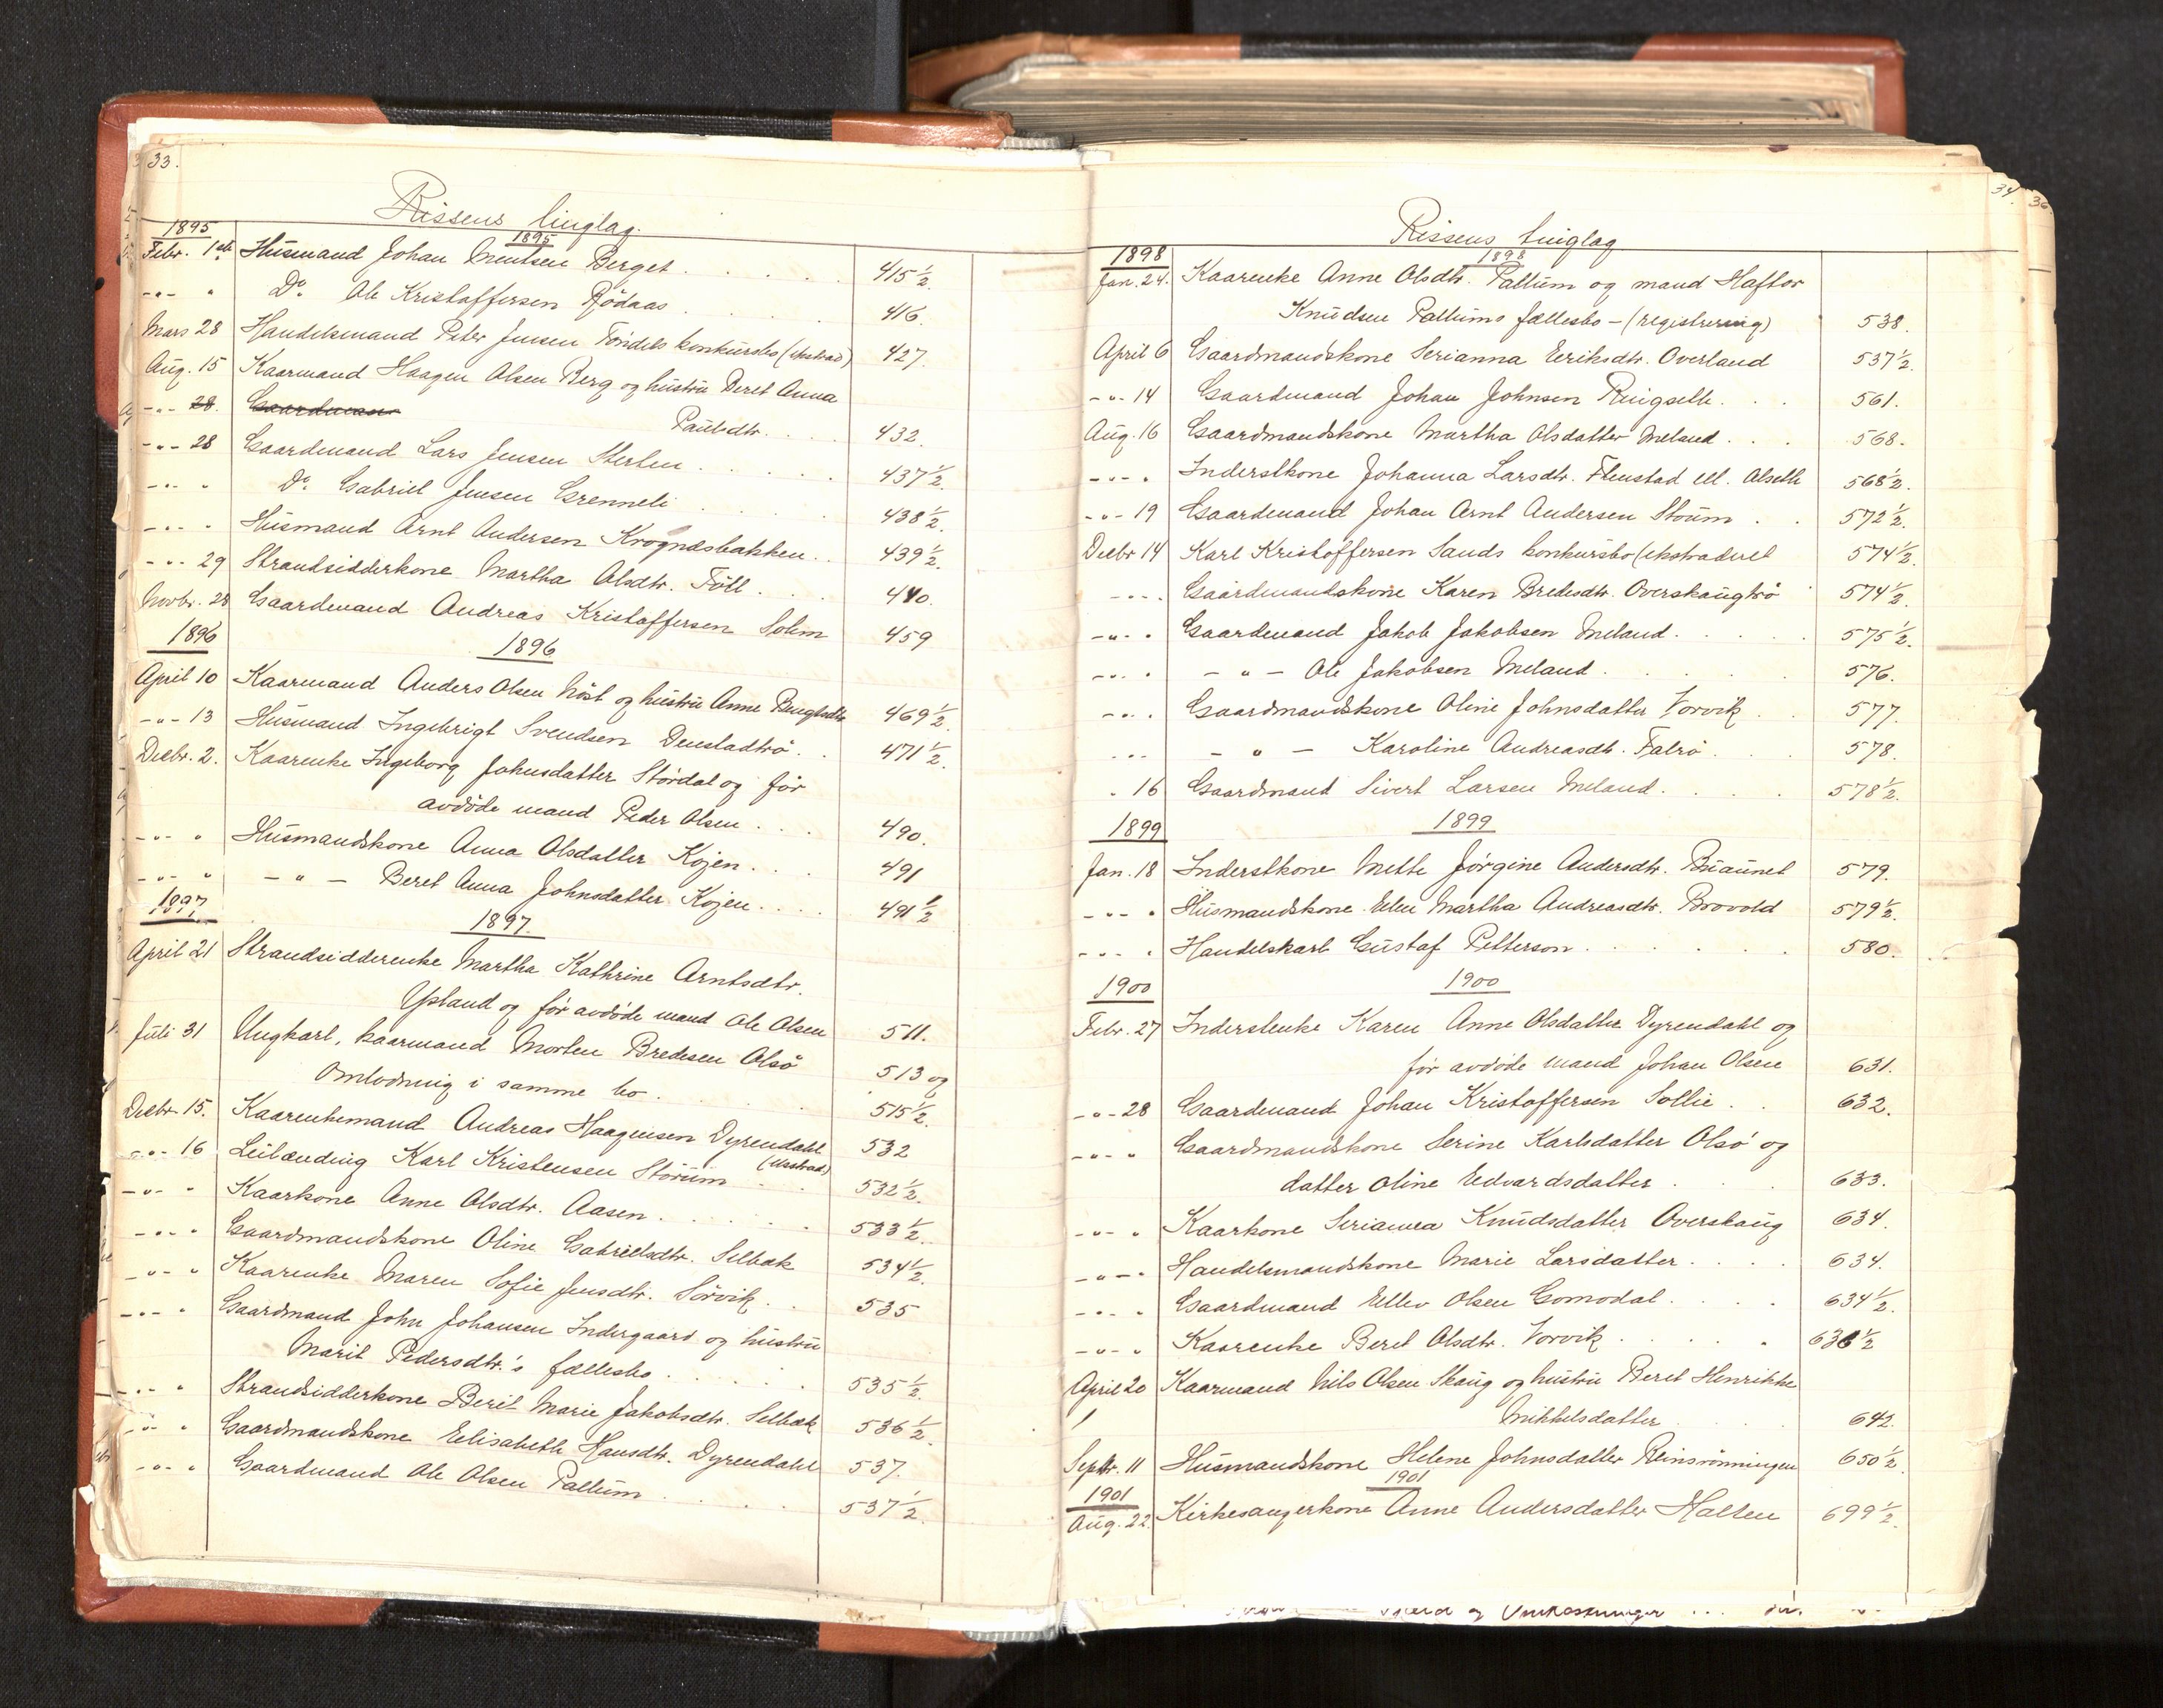 33.
Rissens tinglag.
1895 1895
Febr. 1ste Husmand Johan Berget 415½.
-"- " Do. Ole Kristoffersen Rödaas 416.
Mars 28 Handelsmand Peter Jensen Töndels konkursbo (ekstrad) 427.
Aug. 15 Kaarmand Haagen Olsen Berg og hustru Beret Anna
-"- 28. Gaardmand
Paulsdtr. 432.
-"- 28 Gaardmand Lars Jensen Sterten 437½.
-"- " Do. Gabriel Jensen Grenneli 438½.
-"- " Husmand Arnt Andersen Krognæsbakken 439½.
-"- 29 Strandsidderkone Martha Olsdtr. Föll 440.
Novbr. 28 Gaardmand Andreas Kristoffersen Solem 459
1896 1896
April 10 Kaarmand Anders Olsen Nöst og hustru Anne Bengtsdtr 469½.
-"- 13 Husmand Ingebrigt Svendsen Denstadtrö. 471½.
Decbr. 2. Kaarenke Ingeborg Johnsdatter Stördal og för
avdöde mand Peder Olsen 490.
-"- " Husmandskone Anna Olsdatter Kojen 491
-"- " -"- Beret Anna Johnsdatter Kojen 491½
1897 1897.
April 21 Strandsidderenke Martha Kathrine Arntsdtr.
Ysland og för avdöde mand Ole Olsen 511.
Juli 31 Ungkarl, kaarmand Morten Bredesen Olsö 513 og
Omlodning i samme bo 515½.
Decbr. 15. Kaarenkemand Andreas Haagensen Dyrendahl 532
-"- 16 Leilænding Karl Kristensen Störum (ekstrad) 532½.
-"- " Kaarkone Anne Olsdtr. Aasen 533½.
-"- " Gaardmandskone Oline Gabrielsdtr. Selbæk 534½.
-"- " Kaarenke Maren Sofie Jensdtr. Sörvik 535
-"- " Gaardmand John Johansen Indergaard og hustru
Marit Pedersdtr.'s fællesbo 535½.
-"- " Strandsidderkone Berit Marie Jakobsdtr. Selbæk 536½.
-"- " Gaardmandskone Elisabeth Hansdtr. Dyrendahl 537.
-"- " Gaardmand Ole Olsen Pallum 537½.
34.
36
Rissens tinglag
1898 1898
Jan. 24. Kaarenke Anne Olsdtr. Pallum og mand Haftor
Knudsen Pallums fællesbo - (registrering) 538.
April 6 Gaardmandskone Serianna Eeriksdtr. Overland 537½.
-"- 14 Gaardmand Johan Johnsen Ringseth 561.
Aug. 16 Gaardmandskone Martha Olsdatter Meland 568.
-"- " Inderstkone Johanna Larsdtr. Flenstad ell. Alseth 568½.
-"- 19 Gaardmand Johan Arnt Andersen Stoum 572½.
Decbr 14 Karl Kristoffersen Sands konkursbo (ekstraderet 574½.
-"- " Gaardmandskone Karen Bredesdtr. Overskaugtrö 574½.
-"- " Gaardmand Jakob Jakobsen Meland 575½.
-"- " -"- Ole Jakobsen Meland 576.
-"- " Gaardmandskone Oline Johnsdatter Vorvik 577.
-"- " -"- Karoline Andreasdtr. Falrö 578.
" 16 Gaardmand Sivert Larsen Meland 578½.
1899 1899
Jan. 18 Inderstkone Mette Jörgine Andersdtr. Buaunet 579.
-"- " Husmandskone Elen Martha Andreasdtr. Brovold 579½.
-"- " Handelskarl Gustaf Petterson 580.
1900 1900
Febr. 27 Inderstenke Karen Anne Olsdatter Dyrendahl og
för avdöde mand Johan Olsen 631.
-"- 28 Gaardmand Johan Kristoffersen Sollie 632.
-"- " Gaardmandskone Serine Karlsdatter Olsö og
datter Oline Edvardsdatter 633.
-"- " Kaarkone Serianna Knudsdatter Overskaug 634.
-"- " Handelsmandskone Marie Larsdatter 634.
-"- " Gaardmand Ellev Olsen Gomodal 634½.
-"- " Kaarenke Beret Olsdtr. Vorvik 636½
April 20 Kaarmand Nils Olsen Skaug og hustru Beret Henrikke
Mikkelsdatter 642.
Septbr. 11 Husmandskone Helene Johnsdatter Reinsrönningen 650½.
1901 1901
Aug. 22. Kirkesangerkone Anne Andersdatter Halten 699½.